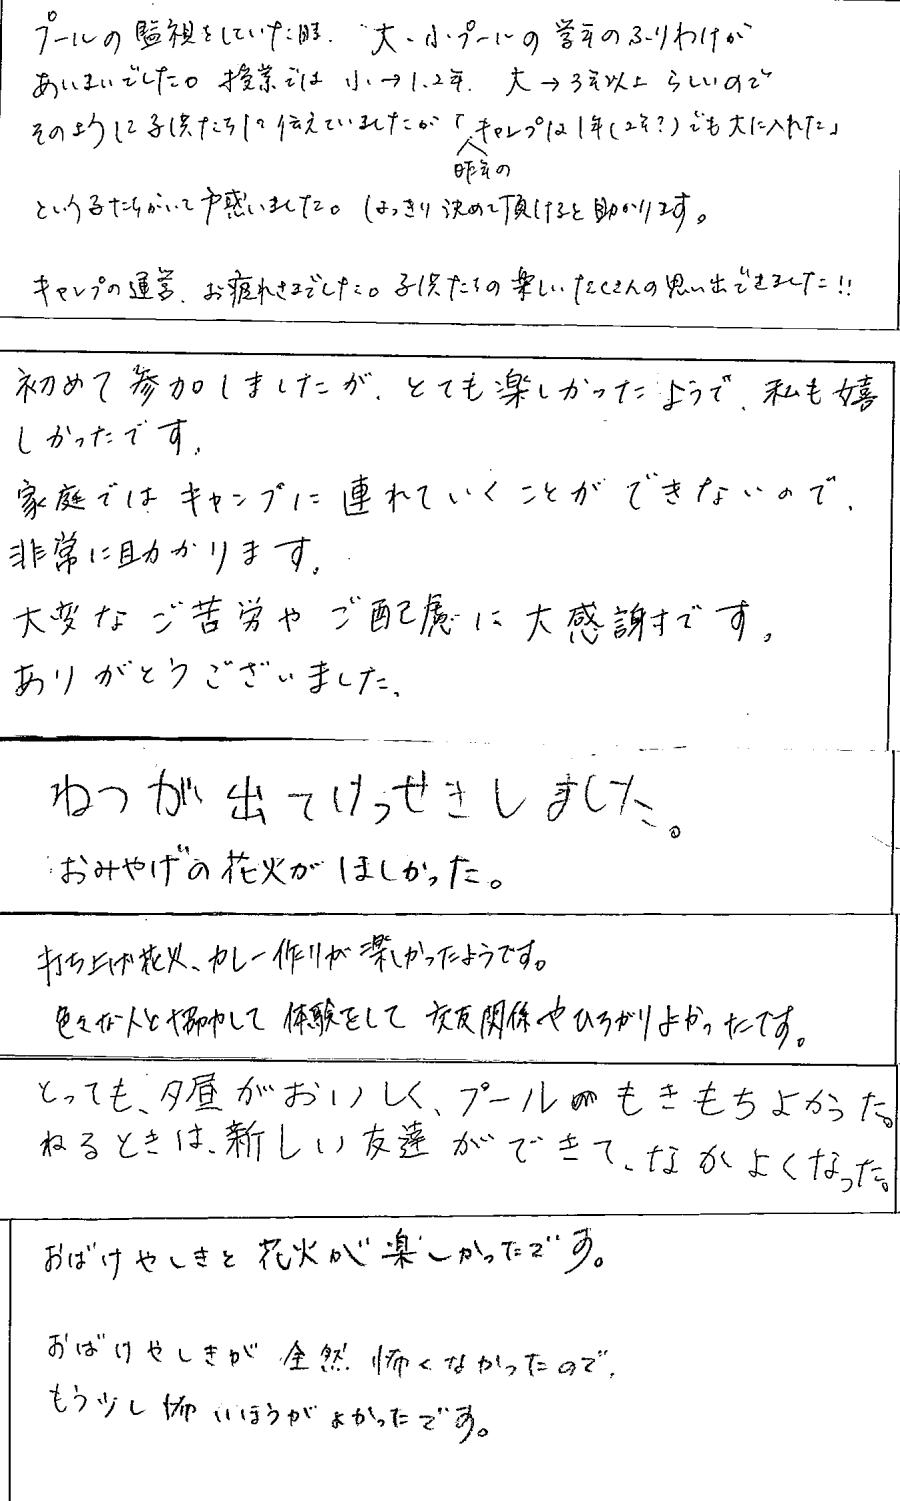 プールの監視をしていた時、大・小プールの学年のふりわけが
あいまいでした。授業では 小→1.2年. 大→3年以上 らしいので
そのように子供たちに伝えていましたが「キャンプは1年(2年?)でも大に入れた」
昨年の
という子たちがいて戸惑いました。はっきり決めて頂けると助かります。
キャンプの運営、お疲れさまでした。子供たちの楽しいたくさんの思い出できました!!
初めて参加しましたが、とても楽しかったようで、私も嬉
しかったです。
家庭ではキャンプに連れていくことができないので、
非常に助かります。
大変なご苦労やご配慮に大感謝です。
ありがとうございました。
ねつが出てけっせきしました。
おみやげの花火がほしかった。
打ち上げ花火、カレー作りが楽しかったようです。
色々な人と協力して体験をして交友関係やひろがりよかったです。
とっても、夕昼がおいしく、プールのもきもちよかった。
ねるときは、新しい友達ができて、なかよくなった。
おばけやしきと花火が楽しかったです。
おばけやしきが全然怖くなかったので、
もう少し怖いほうがよかったです。